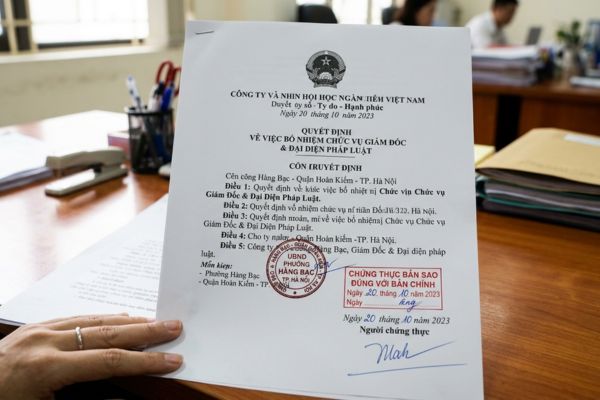 CÔNG TY VÀ NHIN HỌI HỌC NGÂN TIỀN VIỆT NAM
Duyết ơy số - Ty do - Hạnh phúc
Ngày 20 tháng 10 năm 2023
QUYẾT ĐỊNH
VỀ VIỆC BỔ NHIỆM CHỨC VỤ GIÁM ĐỐC
& ĐẠI DIỆN PHÁP LUẬT
CÔN TRUYẾT ĐỊNH
Cên công Hàng Bạc - Quận Hoàn Kiếm - TP. Hà Nội
Điều 1: Quyết định về kiúc việc bổ nhiệt nị Chức vịu Chức vụ
Giám Đốc & Đại Diện Pháp Luật.
Điều 2: Quyết định vổ nhiệm chức vụ Hà Nội.
Điều 3: Quyết định moán, mí về việc bổ nhiệm Chức vụ Chức Vụ
Giám Đốc & Đại Diện Pháp Luật.
Điều 4: Cho ty Quận Hoàn Kiếm - TP. Hà Nội.
Điều 5: Công ty Hàng Bạc, Giám Đốc & Đại diện pháp
luật.
Mẫn kiẹp:
- Phường Hàng Bạc
- Quận Hoàn Kiếm - TP
UBND
PHƯỜNG
HÀNG BẠC
TP. HÀ NỘI
CHỨNG THỰC BẢN SAO
ĐÚNG VỚI BẢN CHÍNH
Ngày 20, tháng 10 năm 2023
Ngày
Ngày 20 tháng 10 năm 2023
Người chứng thực